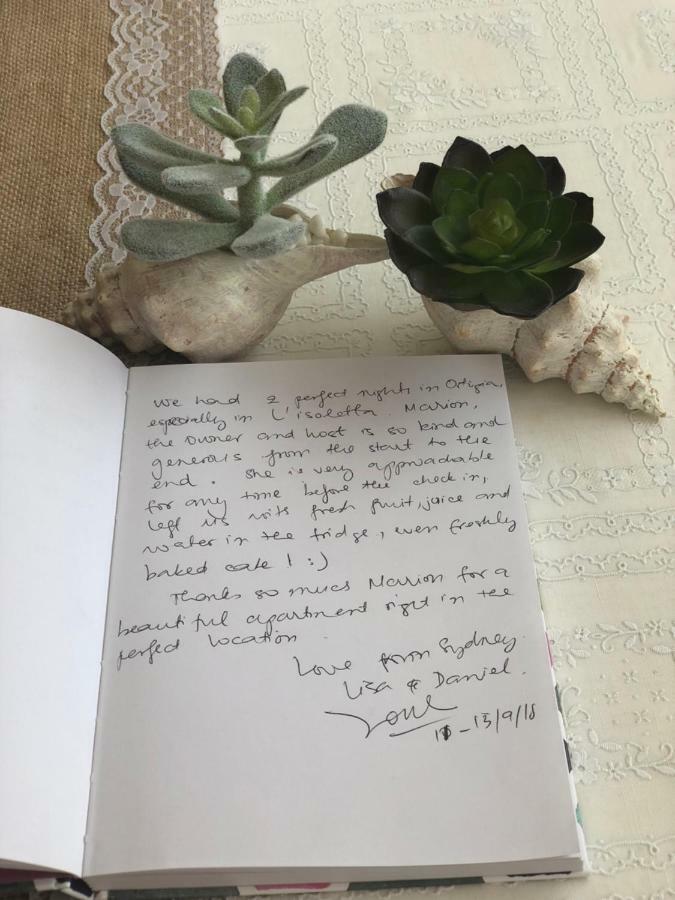 We had 2 perfect nights in Ortigia,
especially in L'isoletta. Marion,
the owner and host is so kind and
generous from the start to the
end. She is very approachable
for any time before the check in,
left us with fresh fruit, juice and
water in the fridge, even freshly
baked cake! :)
Thanks so much Marion for a
beautiful apartment right in the
perfect location.
Love from Sydney.
Lisa & Daniel.
- 13/9/18